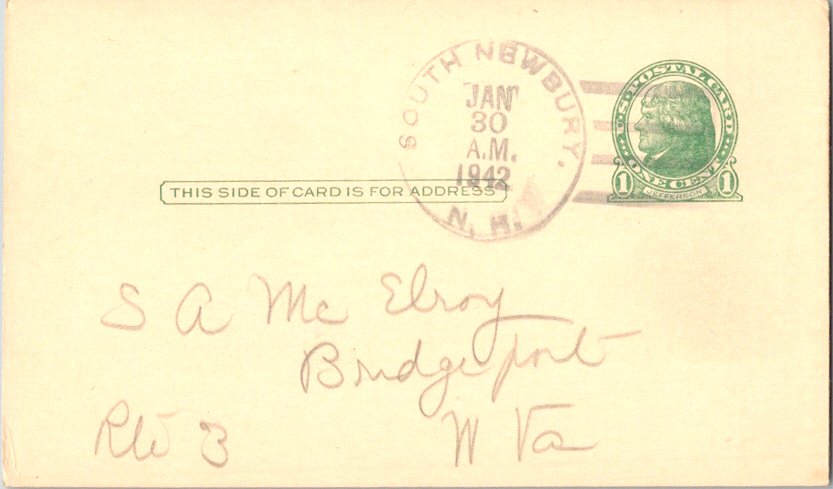 SOUTH NEWBURY,
JAN
30
A.M.
1942
N. H.
U.S. POSTAL CARD
ONE CENT
1 JEFFERSON 1
THIS SIDE OF CARD IS FOR ADDRESS
S A Mc Elroy
Bridgeport
3 W Va